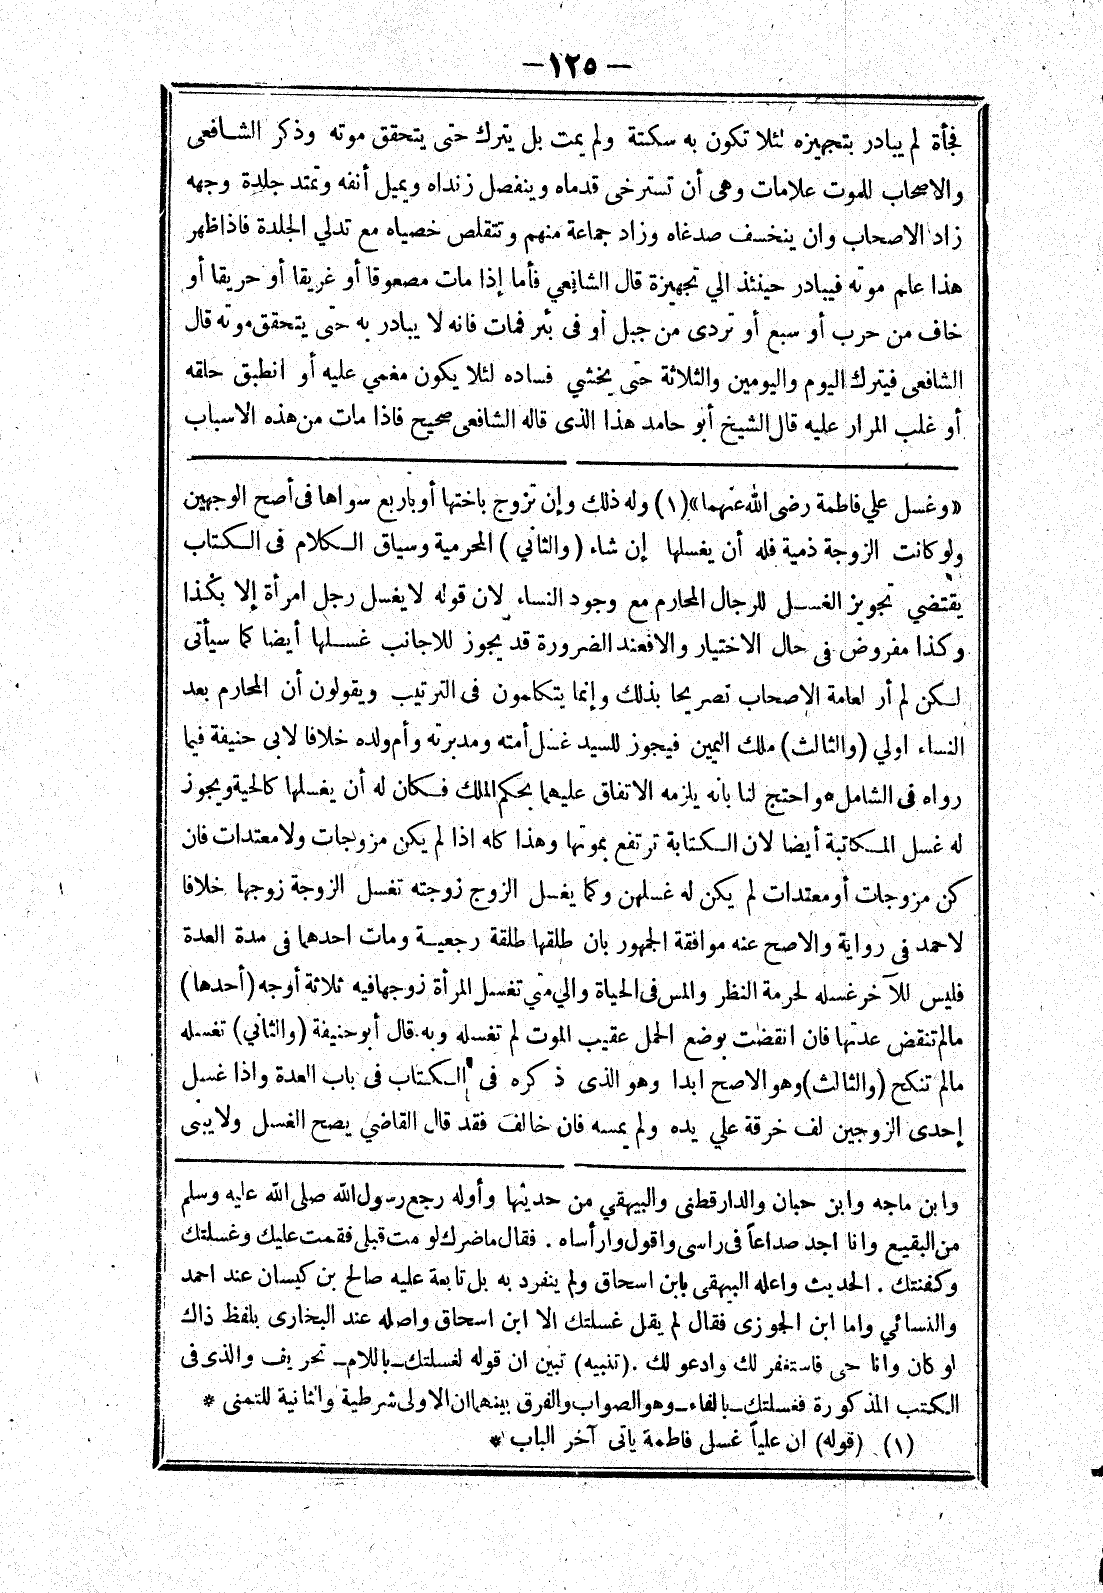 — ١٢٥ —
فجأة لم يبادر بتجهيزه لئلا تكون به سكتة ولم يمت بل يترك حتى يتحقق موته وذكر الشافعى
والاصحاب للموت علامات وهى أن تسترخى قدماه وينفصل زنداه ويميل أنفه وتمتد جلدة وجهه
زاد الاصحاب وان ينخسف صدغاه وزاد جماعة منهم وتتقلص خصياه مع تدلي الجلدة فاذا ظهر
هذا علم موته فيبادر حينئذ الي تجهيزة قال الشافعي فأما إذا مات مصعوقا أو غريقا أو حريقا أو
خاف من حرب أو سبع أو تردى من جبل أو فى بئر فمات فانه لا يبادر به حتى يتحقق موته قال
الشافعى فيترك اليوم واليومين والثلاثة حتى يخشي فساده لئلا يكون مغمي عليه أو انطبق حلقه
أو غلب المرار عليه قال الشيخ أبو حامد هذا الذى قاله الشافعى صحيح فاذا مات من هذه الاسباب
«وغسل علي فاطمة رضى الله عنهما»(١) وله ذلك وإن تزوج باختها أو باربع سواها فى أصح الوجهين
ولو كانت الزوجة ذمية فله أن يغسلها إن شاء (والثاني) المحرمية وسياق الكلام فى الكتاب
يقتضي تجويز الغسل للرجال المحارم مع وجود النساء لان قوله لا يغسل رجل امرأة إلا بكذا
وكذا مفروض فى حال الاختيار والا فعند الضرورة قد يجوز للاجانب غسلها أيضا كما سيأتى
لكن لم أر لعامة الاصحاب تصريحا بذلك وإنما يتكلمون فى الترتيب ويقولون أن المحارم بعد
النساء اولي (والثالث) ملك اليمين فيجوز للسيد غسل أمته ومدبرته وأم ولده خلافا لابى حنيفة فيما
رواه فى الشامل * واحتج لنا بانه يلزمه الاتفاق عليهما بحكم الملك فكان له أن يغسلها كالحية ويجوز
له غسل المكاتبة أيضا لان الكتابة ترتفع بموتها وهذا كله اذا لم يكن مزوجات ولا معتدات فان
كن مزوجات أو معتدات لم يكن له غسلهن وكما يغسل الزوج زوجته تغسل الزوجة زوجها خلافا
لاحمد فى رواية والاصح عنه موافقة الجمهور بان طلقها طلقة رجعية ومات احدهما فى مدة العدة
فليس للآخر غسله لحرمة النظر والمس فى الحياة والي متي تغسل المرأة زوجها فيه ثلاثة أوجه (أحدها)
مالم تنقض عدتها فان انقضت بوضع الحمل عقيب الموت لم تغسله وبه قال أبو حنيفة (والثاني) تغسله
مالم تنكح (والثالث) وهو الاصح ابدا وهو الذى ذكره فى الكتاب فى باب العدة واذا غسل
إحدى الزوجين لف خرقة علي يده ولم يمسه فان خالف فقد قال القاضي يصح الغسل ولا يبى
وابن ماجه وابن حبان والدارقطنى والبيهقي من حديثها وأوله رجع رسول الله صلى الله عليه وسلم
من البقيع وانا اجد صداعاً فى راسى واقول وارأساه . فقال ما ضرك لو مت قبلى فقمت عليك وغسلتك
وكفنتك . الحديث واعله البيهقى بابن اسحاق ولم ينفرد به بل تابعة عليه صالح بن كيسان عند احمد
والنسائي واما ابن الجوزى فقال لم يقل غسلتك الا ابن اسحاق واصله عند البخارى بلفظ ذاك
لو كان وانا حى فاستغفر لك وادعو لك . (تنبيه) تبين ان قوله لغسلتك ــ باللام ــ تحريف والذى فى
الكتب المذكورة فغسلتك ــ بالفاء ــ وهو الصواب والفرق بينهما ان الاولى شرطية والثانية للتمنى *
(١) (قوله) ان علياً غسل فاطمة ياتى آخر الباب *